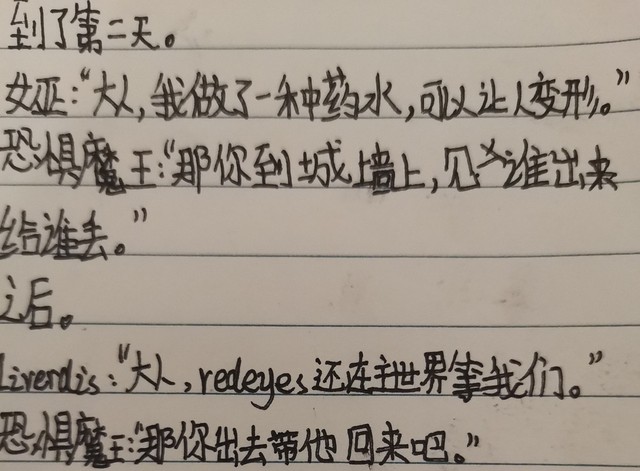 到了第二天。
女巫:“大人,我做了一种药水,可以让人变形。”
恐惧魔王:“那你到城墙上,见谁出来
给谁丢。”
之后。
Liverdis:“大人,redeyes还在主世界等我们。”
恐惧魔王:“那你出去带他回来吧。”